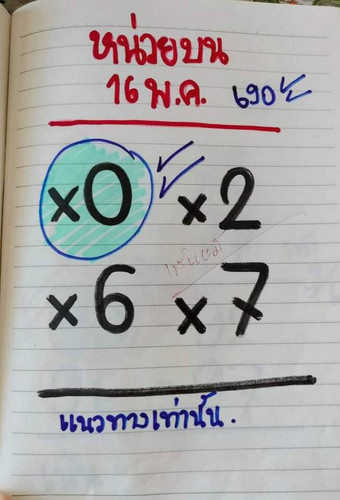 หน่วยบน
16 พ.ค. 690
x0 x2
x6 x7
แนวทางเท่านั้น.